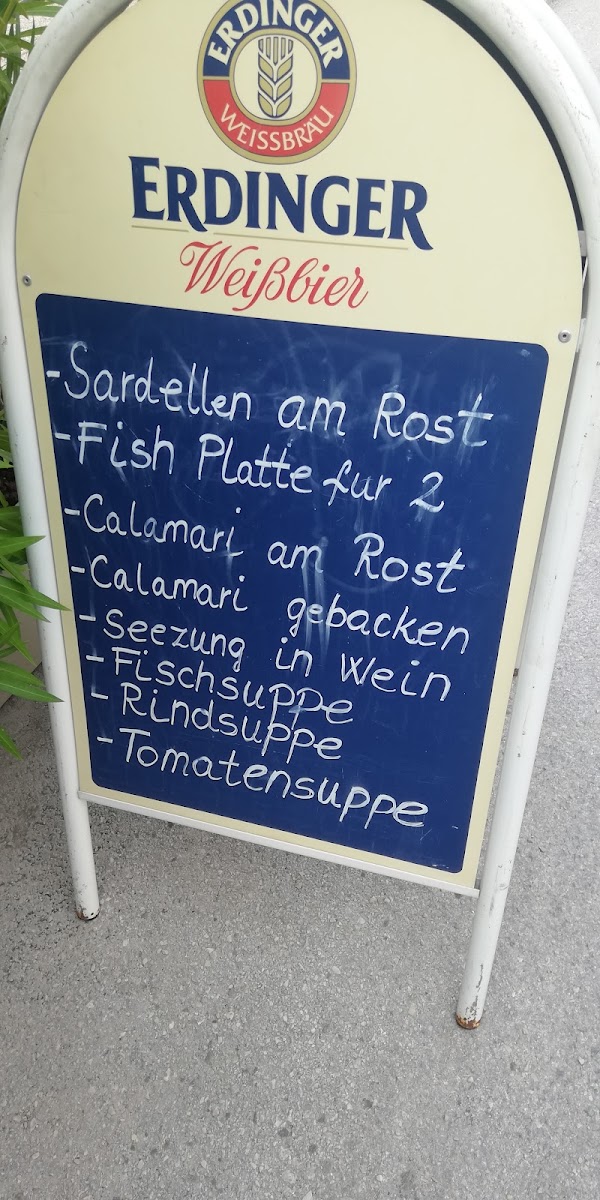 ERDINGER
WEISSBRÄU
ERDINGER
Weißbier
-Sardellen am Rost
-Fish Platte fur 2
-Calamari am Rost
-Calamari gebacken
-Seezung in Wein
-Fischsuppe
-Rindsuppe
-Tomatensuppe